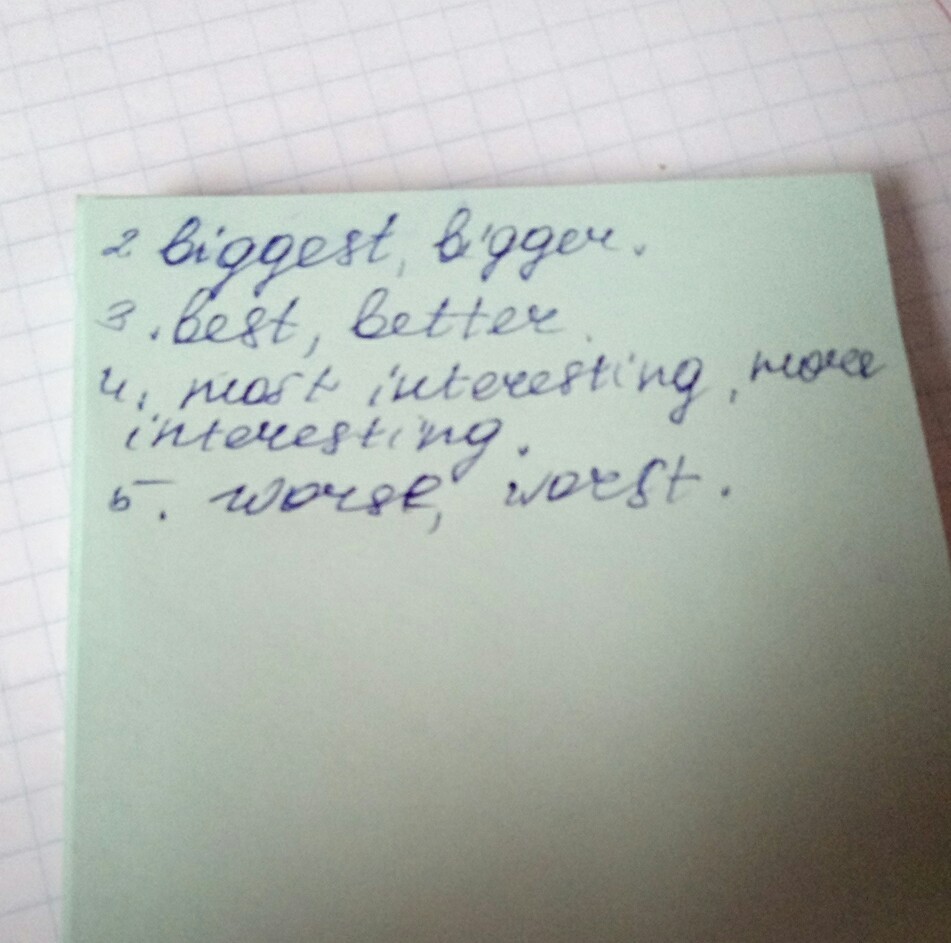 2 biggest, bigger.
3. best, better.
4. most interesting, more
interesting.
5. worse, worst.